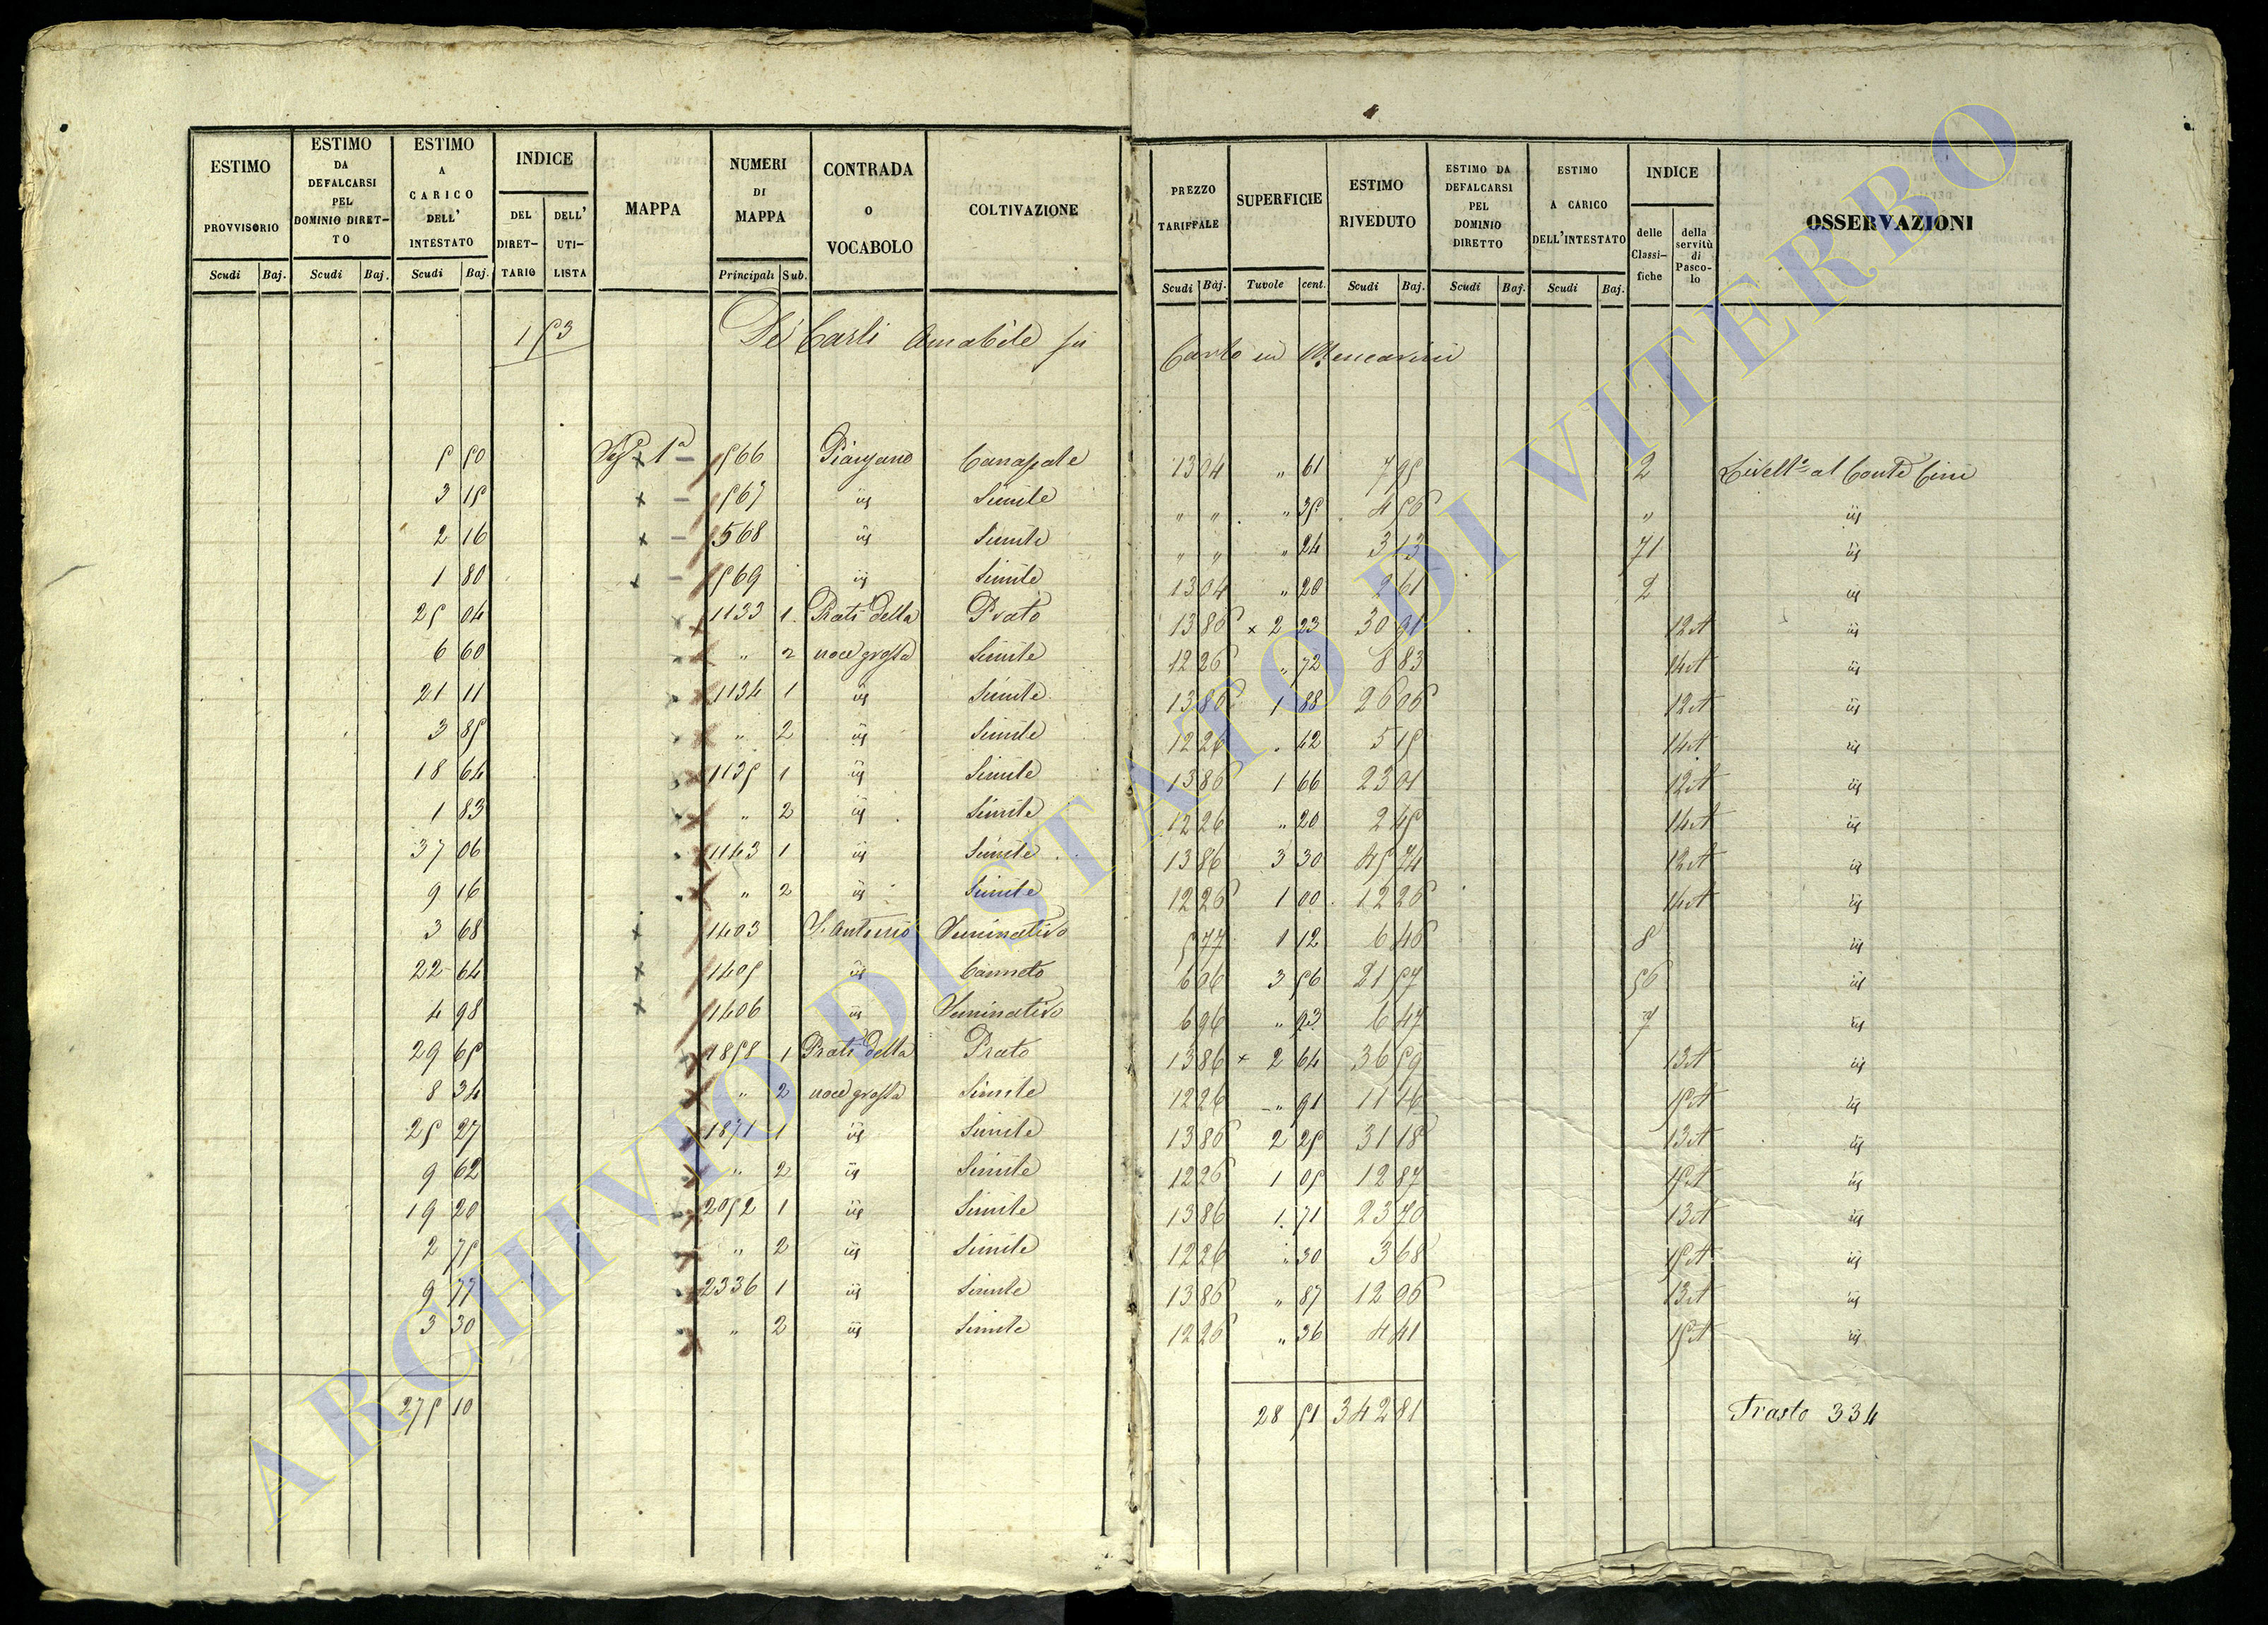 ESTIMO PROVVISORIO Scudi Baj.
ESTIMO DA DEFALCARSI PEL DOMINIO DIRETTO Scudi Baj.
ESTIMO A CARICO DELL' INTESTATO Scudi Baj.
INDICE DEL DIRETTARIO DELL' UTILISTA
MAPPA
NUMERI DI MAPPA Principali Sub.
CONTRADA O VOCABOLO
COLTIVAZIONE
PREZZO TARIFFALE Scudi Baj.
SUPERFICIE Tavole cent.
ESTIMO RIVEDUTO Scudi Baj.
ESTIMO DA DEFALCARSI PEL DOMINIO DIRETTO Scudi Baj.
ESTIMO A CARICO DELL'INTESTATO Scudi Baj.
INDICE delle Classifiche della servitù di Pascolo
OSSERVAZIONI
153 De Carli Amabile fu Carlo in Mencarini
5 50 Sez. 1a 566 Piangano Canapale 13 04 " 61 7 95 2 Livell. al Conte Cini
3 15 567 iis Simile " " " 35 4 56 " iis
2 16 568 iis Simile " " " 24 3 13 71 iis
1 80 569 iis Simile 13 04 " 20 2 61 2 iis
25 04 1133 1 Prati della Prato 13 86 2 23 30 91 12 A iis
6 60 " 2 noce grossa Simile 12 26 " 72 8 83 14 A iis
21 11 1134 1 iis Simile 13 86 1 88 26 06 12 A iis
3 85 " 2 iis Simile 12 26 " 42 5 15 14 A iis
18 64 1135 1 iis Simile 13 86 1 66 23 01 12 A iis
1 83 " 2 iis Simile 12 26 " 20 2 45 14 A iis
37 06 1143 1 iis Simile 13 86 3 30 45 74 12 A iis
9 16 " 2 iis Simile 12 26 1 00 12 26 14 A iis
3 68 1403 S. Antonio Seminativo 5 77 1 12 6 46 8 iis
22 64 1405 iis Canneto 6 06 3 56 21 57 56 iis
4 98 1406 iis Seminativo 6 96 " 93 6 47 7 iis
29 65 1858 1 Prati della Prato 13 86 2 64 36 59 13 A iis
8 34 " 2 noce grossa Simile 12 26 " 91 11 16 15 A iis
25 27 1871 1 iis Simile 13 86 2 25 31 18 13 A iis
9 62 " 2 iis Simile 12 26 1 05 12 87 15 A iis
19 20 2052 1 iis Simile 13 86 1 71 23 70 13 A iis
2 75 " 2 iis Simile 12 26 " 30 3 68 15 A iis
9 77 2336 1 iis Simile 13 86 " 87 12 06 13 A iis
3 30 " 2 iis Simile 12 26 " 36 4 41 15 A iis
275 10 28 51 342 81 Trasto 334
ARCHIVIO DI STATO DI VITERBO